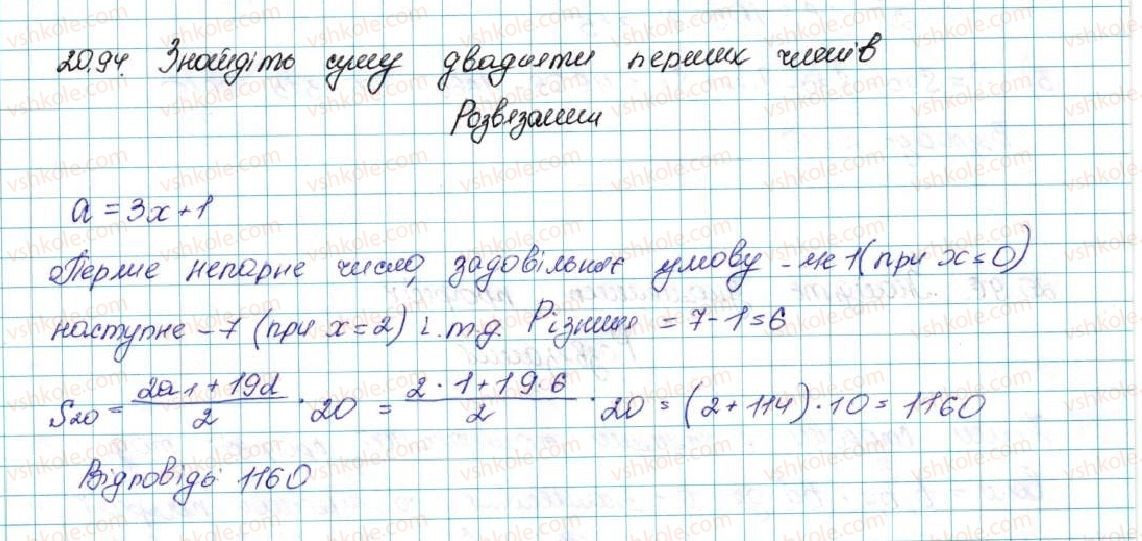 20.94. Знайдіть суму двадцяти перших членів
Розвязання
a = 3x+1
Перше непарне число, задовільняє умову - це 1 (при x = 0)
наступне - 7 (при x = 2) і. т.д. Різниця = 7-1 = 6
S20 = (2a1 + 19d)/2 · 20 = (2 · 1 + 19 · 6)/2 · 20 = (2 + 114) · 10 = 1160
Відповідь 1160
vshkole.com